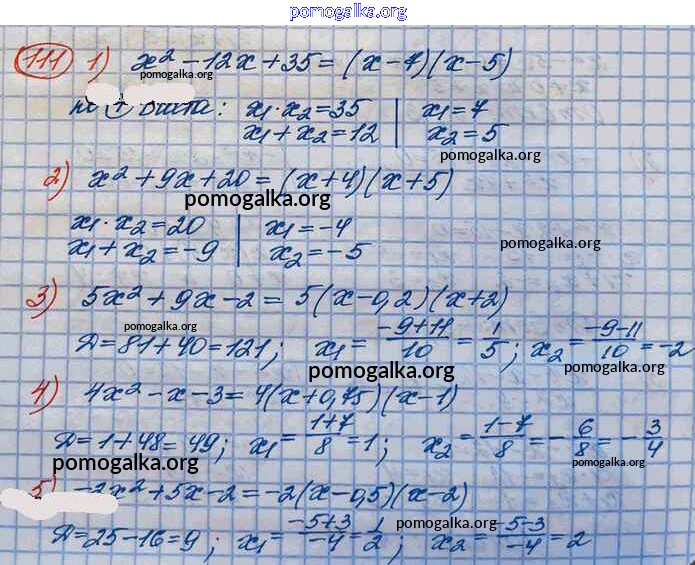 pomogalka.org
111 1) x² - 12x + 35 = (x - 7)(x - 5)
pomogalka.org
по т Виета: x₁·x₂ = 35 | x₁ = 7
x₁ + x₂ = 12 | x₂ = 5
pomogalka.org
2) x² + 9x + 20 = (x + 4)(x + 5)
pomogalka.org
x₁·x₂ = 20 | x₁ = -4
x₁ + x₂ = -9 | x₂ = -5
pomogalka.org
3) 5x² + 9x - 2 = 5(x - 0,2)(x + 2)
pomogalka.org
Д = 81 + 40 = 121; x₁ = (-9+11)/10 = 1/5; x₂ = (-9-11)/10 = -2
pomogalka.org
pomogalka.org
4) 4x² - x - 3 = 4(x + 0,75)(x - 1)
Д = 1 + 48 = 49; x₁ = (1+7)/8 = 1; x₂ = (1-7)/8 = -6/8 = -3/4
pomogalka.org
pomogalka.org
5) -2x² + 5x - 2 = -2(x - 0,5)(x - 2)
pomogalka.org
Д = 25 - 16 = 9; x₁ = (-5+3)/-4 = 1/2; x₂ = (-5-3)/-4 = 2